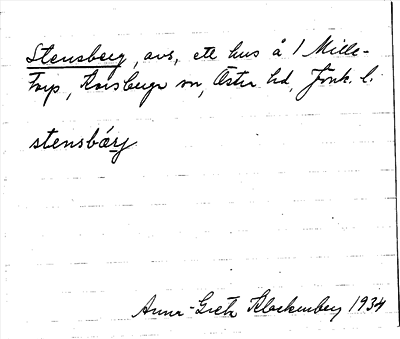 Stensberg, avs, ett hus å 1 Mille-
torp, Korsberga sn, Östra hd, Jönk. l.
stensbärj
Anna-Greta Klockenberg 1934